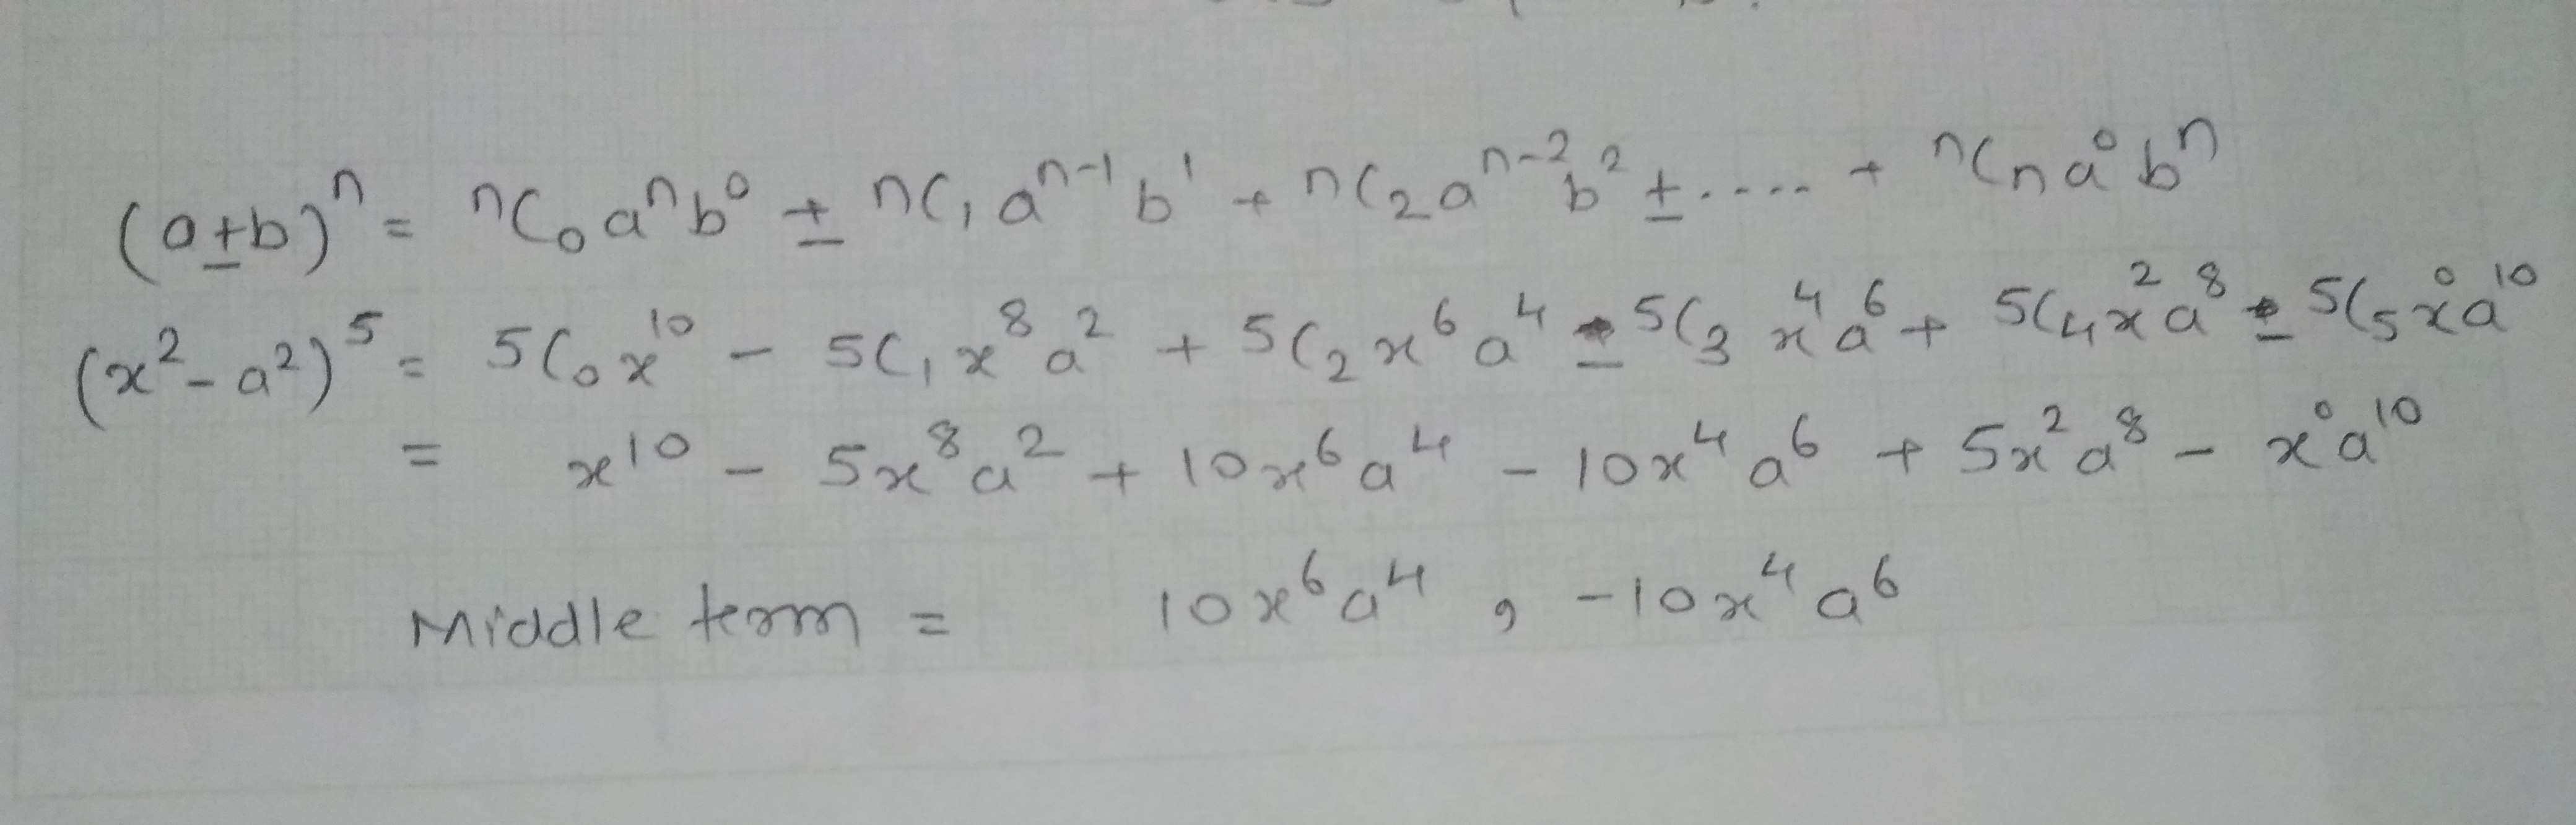 (a±b)ⁿ = ⁿC₀aⁿb⁰ ± nC₁aⁿ⁻¹b¹ + nC₂aⁿ⁻²b² ± .... + ⁿCₙa⁰bⁿ
(x²-a²)⁵ = 5C₀x¹⁰ - 5C₁x⁸a² + 5C₂x⁶a⁴ - 5C₃x⁴a⁶ + 5C₄x²a⁸ - 5C₅x⁰a¹⁰
= x¹⁰ - 5x⁸a² + 10x⁶a⁴ - 10x⁴a⁶ + 5x²a⁸ - x⁰a¹⁰
Middle term = 10x⁶a⁴ , -10x⁴a⁶